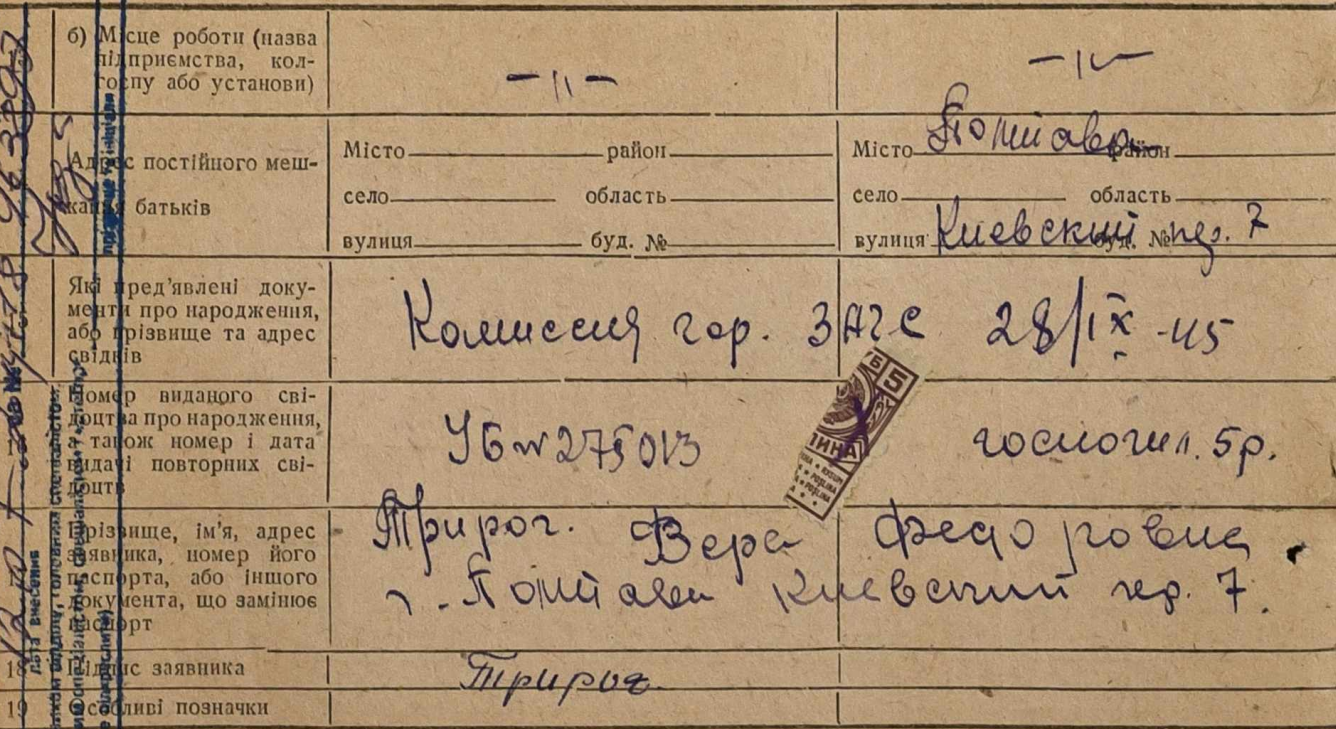 б) Місце роботи (назва
підприємства, кол-
госпу або установи)
—〃—
—〃—
Адрес постійного меш-
кання батьків
Місто район
село область
вулиця буд. №
Місто Полтава район
село область
вулиця Киевский буд. № пер. 7
Які пред'явлені доку-
менти про народження,
або прізвище та адрес
свідків
Комиссия гор. ЗАГС 28/IX-45
Номер виданого сві-
доцтва про народження,
а також номер і дата
видачі повторних сві-
доцтв
УБ № 275013
5
госпошл. 5р.
Прізвище, ім'я, адрес
заявника, номер його
паспорта, або іншого
документа, що замінює
паспорт
Трирог. Вера Федоровна.
г. Полтава Киевский пер. 7.
18 Підпис заявника
Трирог
19 Особливі позначки
дата внесення